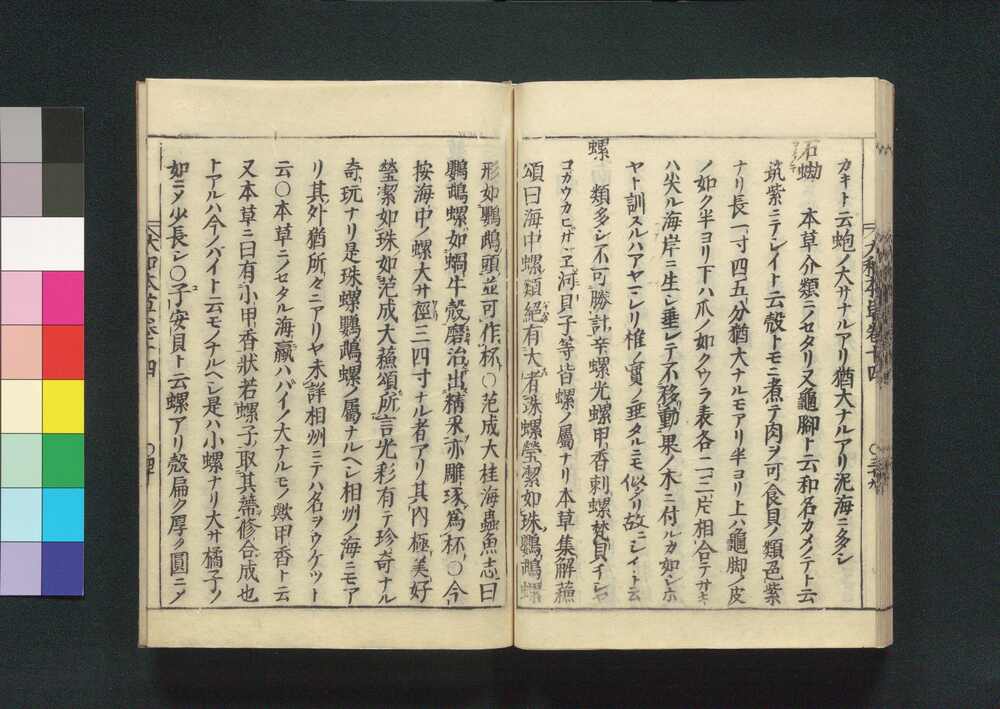 カキト云蚫ノ大サナルアリ猶大ナルアリ泥海ニ多シ
石蜐 本草介類ニノセタリ又龜脚ト云和名カメノテト云
筑紫ニテシイト云殻トモニ煮テ肉ヲ可食貝ノ類色紫
ナリ長一寸四五分猶大ナルモアリ半ヨリ上ハ龜脚ノ皮
ノ如ク半ヨリ下ハ爪ノ如クウラ表各二三片相合テサキ
ハ尖ル海岸ニ生シ垂レテ不移動果ノ木ニ付ルカ如シホ
ヤト訓スルハアヤマレリ椎ノ實ノ垂タルニモ似タリ故ニシイト云
螺 類多シ不可勝計辛螺光螺甲香刺螺梵貝チシロ
コガウカヒガヱ河貝子等皆螺ノ屬ナリ本草集解蘓
頌曰海中螺類絕有大者珠螺瑩潔如珠鸚鵡螺
形如鸚鵡頭並可作杯○范成大桂海蟲魚志曰
鸚鵡螺如蝸牛殻磨治出精采亦雕琢爲杯○今
按海中ノ螺大サ徑三四寸ナル者アリ其内極美好
瑩潔如珠如范成大蘓頌所言光彩有テ珍奇ナル
奇玩ナリ是珠螺鸚鵡螺ノ屬ナルヘシ相州ノ海ニモア
リ其外猶所々ニアリヤ未詳相州ニテハ名ヲウケツト
云○本草ニノセタル海蠃ハバイノ大ナルモノ歟甲香ト云
又本草ニ曰有小甲香狀若螺子取其蔕修合成也
トアルハ今ノバイト云モノナルヘシ是ハ小螺ナリ大サ橘子ノ
如ニメ少長シ○子安貝ト云螺アリ殻扁ク厚ク圓ニメ
大和本草卷十四